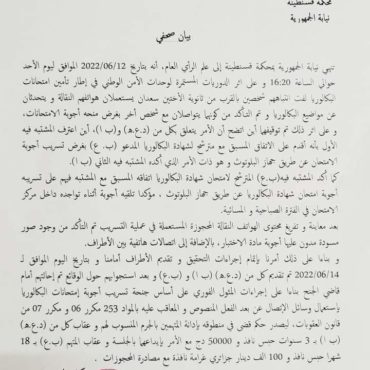 محكمة قسنطينة
نيابة الجمهورية
بيان صحفي
تنهي نيابة الجمهورية بمحكمة قسنطينة إلى علم الرأي العام، أنه بتاريخ 2022/06/12 الموافق ليوم الأحد
حوالي الساعة 16:20 و على اثر الدوريات المستمرة لوحدات الأمن الوطني في إطار تأمين امتحانات
البكالوريا لفت انتباههم شخصين بالقرب من ثانوية الأختين سعدان يستعملان هواتفهم النقالة و يتحدثان
عن مواضيع البكالوريا و تم التأكد من كونهما يتواصلان مع شخص آخر بغرض منحه أجوبة الامتحانات،
و على اثر ذلك تم توقيفها أين اتضح أن الأمر يتعلق بكل من (د.ع.ه) و (ب ا)، أين اعترف المشتبه فيه
الأول بأنه أقدم على الاتفاق المسبق مع مترشح لشهادة البكالوريا المدعو (ب. ع) بغرض تسريب أجوبة
الامتحان عن طريق جهاز البلوتوث و هو ذات الأمر الذي أكده المشتبه فيه الثاني (ب ا).
كما أكد المشتبه فيه (ب.ع) المترشح لامتحان شهادة البكالوريا اتفاقه المسبق مع المشتبه فيهم على تسريبه
أجوبة امتحان شهادة البكالوريا عن طريق جهاز البلوتوث ، مؤكدا تلقيه أجوبة أثناء تواجده داخل مركز
الامتحان في الفترة الصباحية و المسائية.
بعد معاينة و تفريغ محتوى الهواتف النقالة المحجوزة المستعملة في عملية التسريب تم التأكد من وجود صور
مسودة مدون عليها أجوبة مادة الاختبار، بالإضافة إلى اتصالات هاتفية بين الأطراف.
و بناءا على ذلك أمرنا بإتمام إجراءات التحقيق و تقديم الأطراف أمامنا و بتاريخ اليوم الموافق لـ
2022/06/14 تم تقديم كل من (د.ع.ه) (ب ا) و (ب.ع) و بعد استجوابهم حول الوقائع تم إحالتهم أمام
قاضي الجنح بناءا على إجراءات المثول الفوري على أساس جنحة تسريب أجوبة إمتحانات البكالوريا
بإستعمال وسائل الإتصال عن بعد الفعل المنصوص و المعاقب عليه بالمواد 253 مكرر 06 و مكرر 07 من
قانون العقوبات، ليصدر حكم قضى في منطوقه بإدانة المتهمين بالجرم المنسوب لهم و عقاب كل من (د.ع.ه)
(ب ا) بـ 3 سنوات حبس نافذ و 50000 دج مع الأمر بإيداعها بالجلسة و عقاب المتهم (ب.ع) بـ 18
شهرا حبس نافذ و 100 الف دينار جزائري غرامة نافذة مع مصادرة المحجوزات .